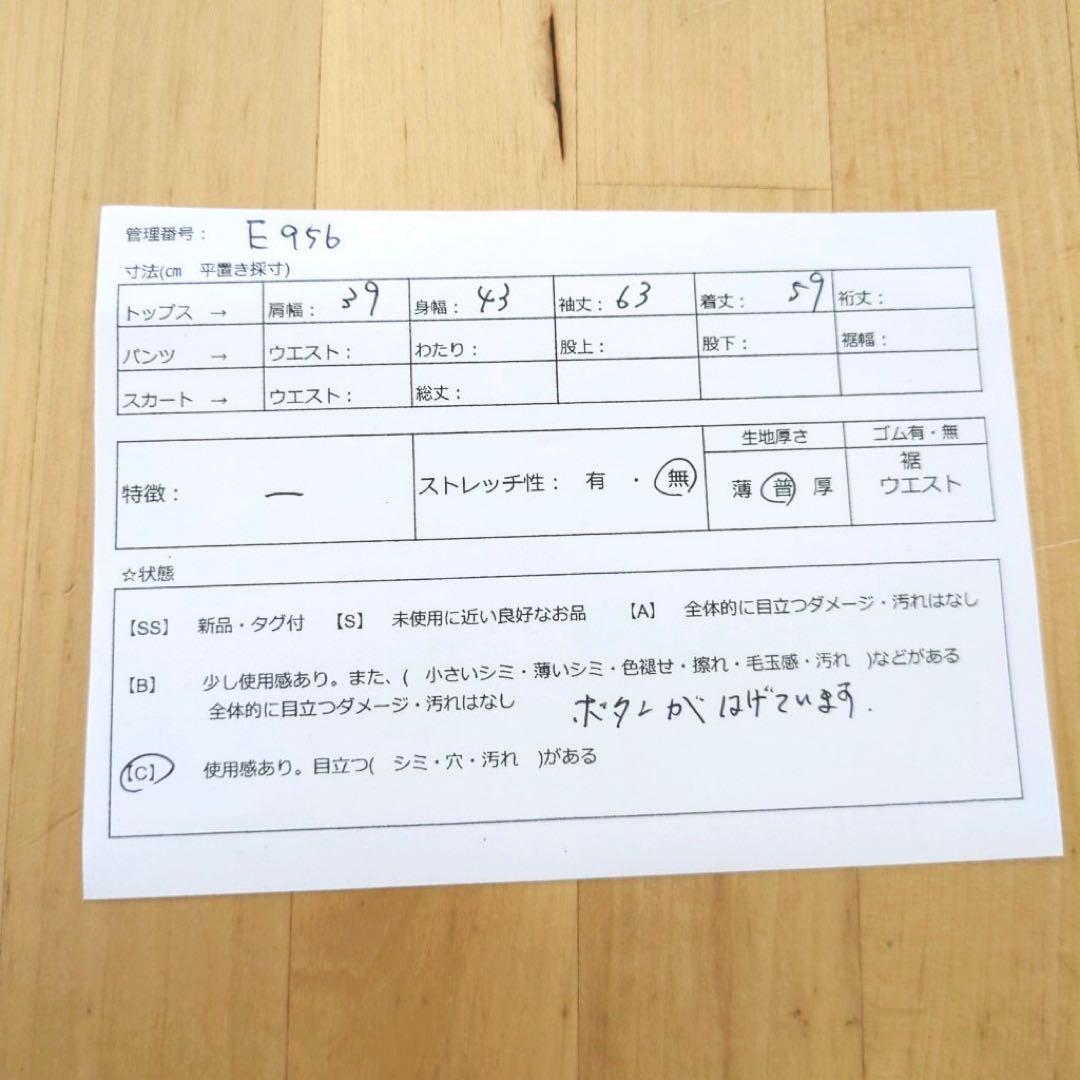 管理番号： E956
寸法(㎝　平置き採寸)
トップス → 肩幅： 39 身幅： 43 袖丈： 63 着丈： 59 裄丈：
パンツ → ウエスト： わたり： 股上： 股下： 裾幅：
スカート → ウエスト： 総丈：
生地厚さ ゴム有・無
特徴： ー ストレッチ性： 有 ・ 無 薄 普 厚 裾
ウエスト
☆状態
【SS】 新品・タグ付 【S】 未使用に近い良好なお品 【A】 全体的に目立つダメージ・汚れはなし
【B】 少し使用感あり。また、( 小さいシミ・薄いシミ・色褪せ・擦れ・毛玉感・汚れ )などがある
全体的に目立つダメージ・汚れはなし ボタンがはげています.
【C】 使用感あり。目立つ( シミ・穴・汚れ )がある